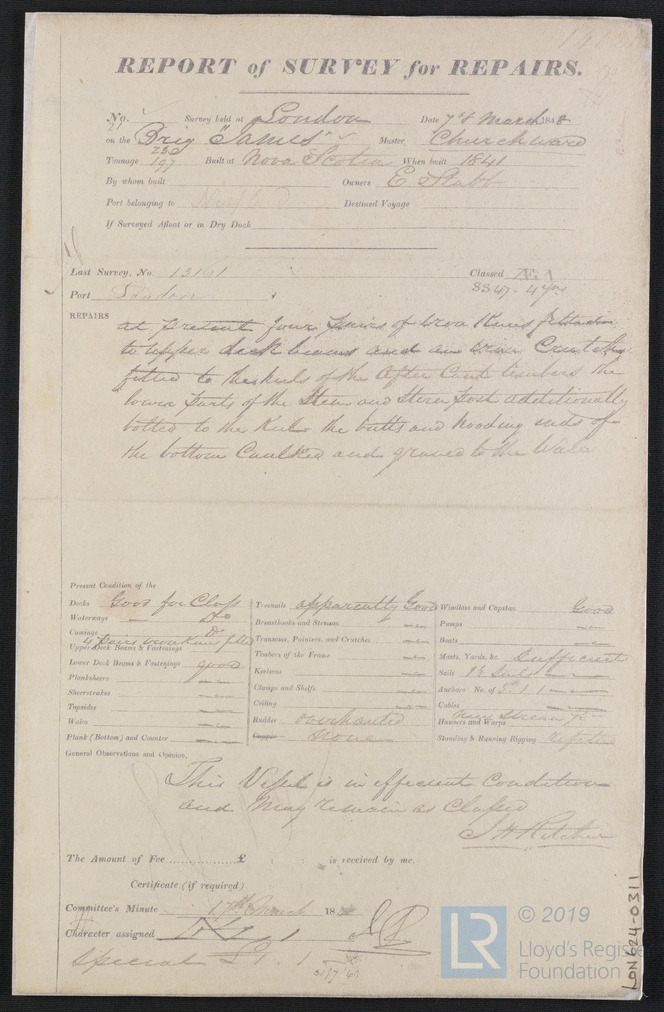 REPORT of SURVEY for REPAIRS.
No. Survey held at London Date 7th March 1848
on the Brig "James" Master Churchward
Tonnage 197 Built at Nova Scotia When built 1841
By whom built Owners E Stabb
Port belonging to Destined Voyage
If Surveyed Afloat or in Dry Dock
Last Survey, No. 13161 Classed Æ 1
Port London
REPAIRS
at present four pairs of iron Knees fitted
to upper deck beams and an iron Crutch
fitted to the heels of the After Cant timbers the
lower parts of the Stem and Stern post additionally
bolted to the Keel the butts and hooding ends of
the bottom Caulked and graved to the Wales
Present Condition of the
Decks Good for Class
Waterways Do
Comings Do
4 pairs iron Knees fitted
Upper Deck Beams & Fastenings
Lower Deck Beams & Fastenings good
Planksheers
Sheerstrakes
Topsides
Wales
Plank (Bottom) and Counter
Treenails apparently Good
Breasthooks and Stemson
Transoms, Pointers, and Crutches
Timbers of the Frame
Keelsons
Clamps and Shelfs
Ceiling
Rudder overhauled
Copper None
Windlass and Capstan Good
Pumps
Boats
Masts, Yards, &c. Sufficient
Sails
Anchors No. of
Cables
Hawsers and Warps
Standing & Running Rigging refitted
General Observations and Opinion,
This Vessel is in efficient Condition
and May remain as Classed
The Amount of Fee £ : : is received by me.
Certificate (if required)
Committee's Minute 17th March 184
Character assigned
Special £1. 1
31/7/60
LON624-0311
LR © 2019
Lloyd's Register
Foundation